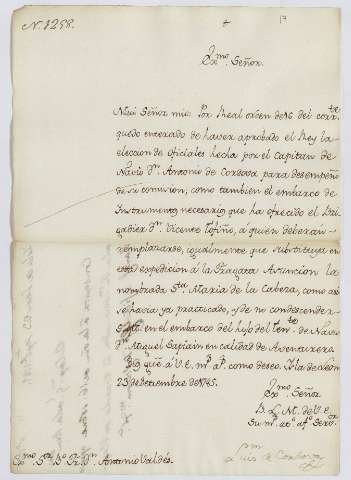 N. 1258.
Exmo. Señor.
Mui Señor mio: Por Real orden de 16 del corrte.
quedo enterado de haver aprobado el Rey la
eleccion de oficiales hecha por el Capitan de
Navio Dn. Antonio de Cordova para desempeño
de su comision, como tambien el embarco de
Instrumentos necesarios que ha ofrecido el Bri-
gadier Dn. Vicente Tofiño, a quien deberan
remplazarse, igualmente que substituya en
esta expedicion á la Fragata Asuncion la
nombrada Sta. Maria de la Cabeza, como asi
se havia ya practicado, y de no condescender
S.M. en el embarco del hijo del Tente. de Navio
Dn. Miguel Sapiain en calidad de Aventurero.
Dios gue. á V.E. ms. as. como deseo. Isla de Leon
23 de Setiembre de
Exmo. Señor
B. L. M. de V.E.
Su ms. at.
Luis de Cordova
Exmo. Sr. Bo. Fr. Dn. Antonio Valdés.